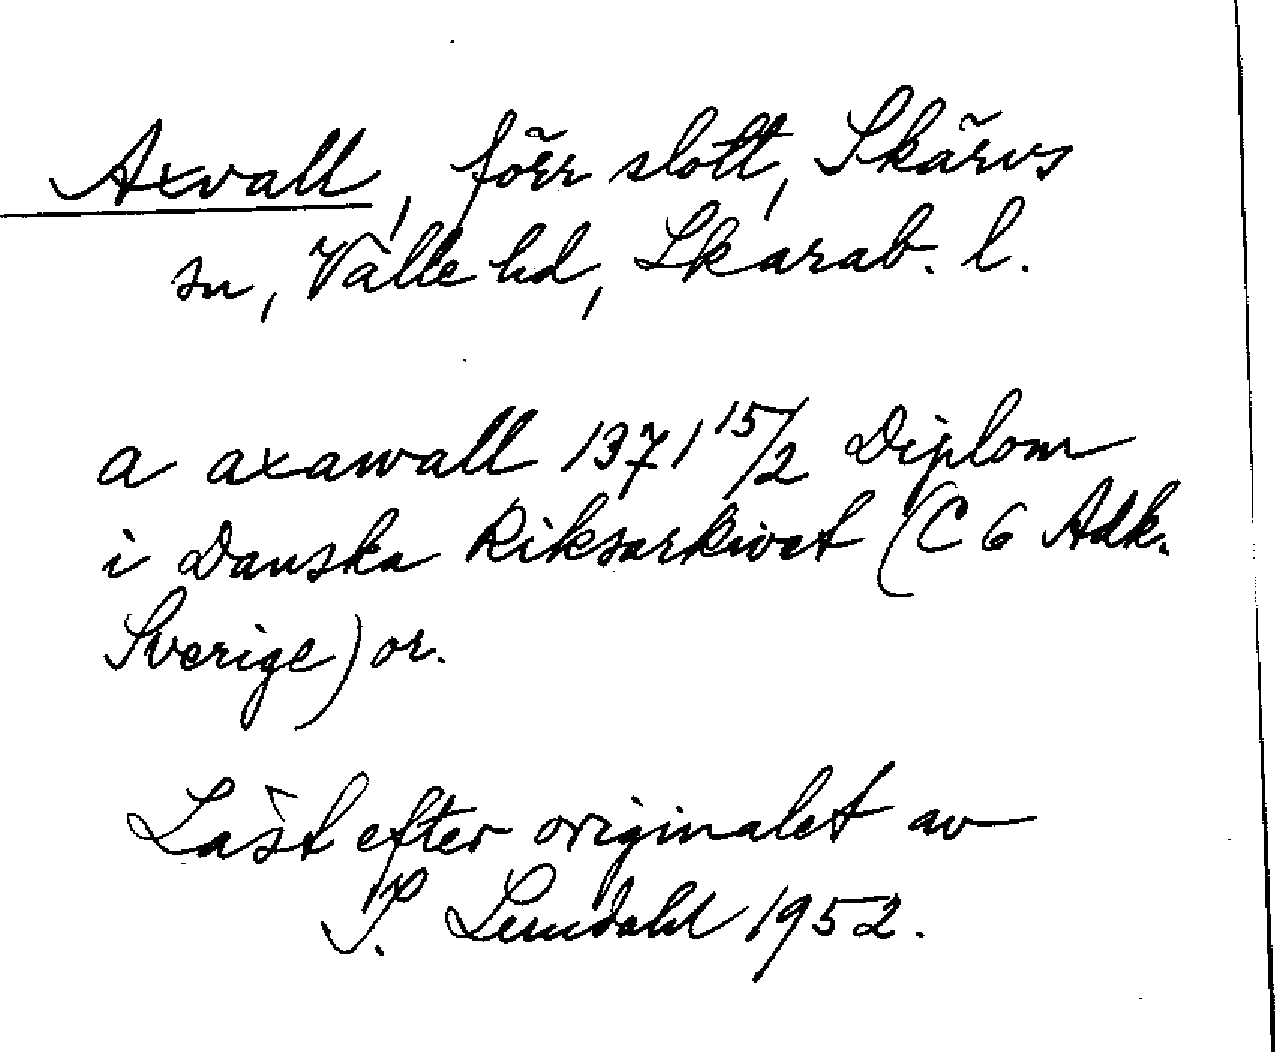 Axvall, förr slott, Skärvs
sn, Valle hd, Skarab. l.
a axawall 1371 15/2 Diplom
i Danska Riksarkivet (C 6 Adk.
Sverige) or.
Läst efter originalet av
P. 1952.